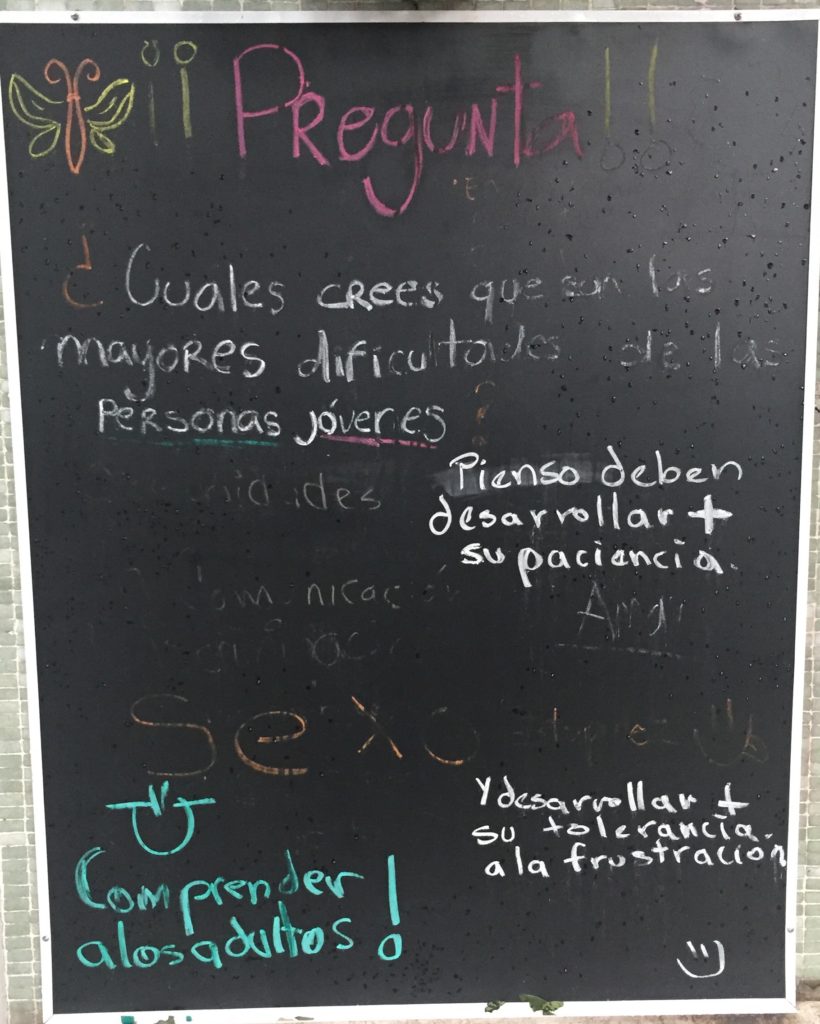 ¡¡Pregunta!!
¿Cuales crees que son las
mayores dificultades de las
personas jóvenes?
Pienso deben
desarrollar +
su paciencia.
Comunicación
Sexo
Y desarrollar +
su tolerancia.
a la frustración
Comprender
a los adultos!